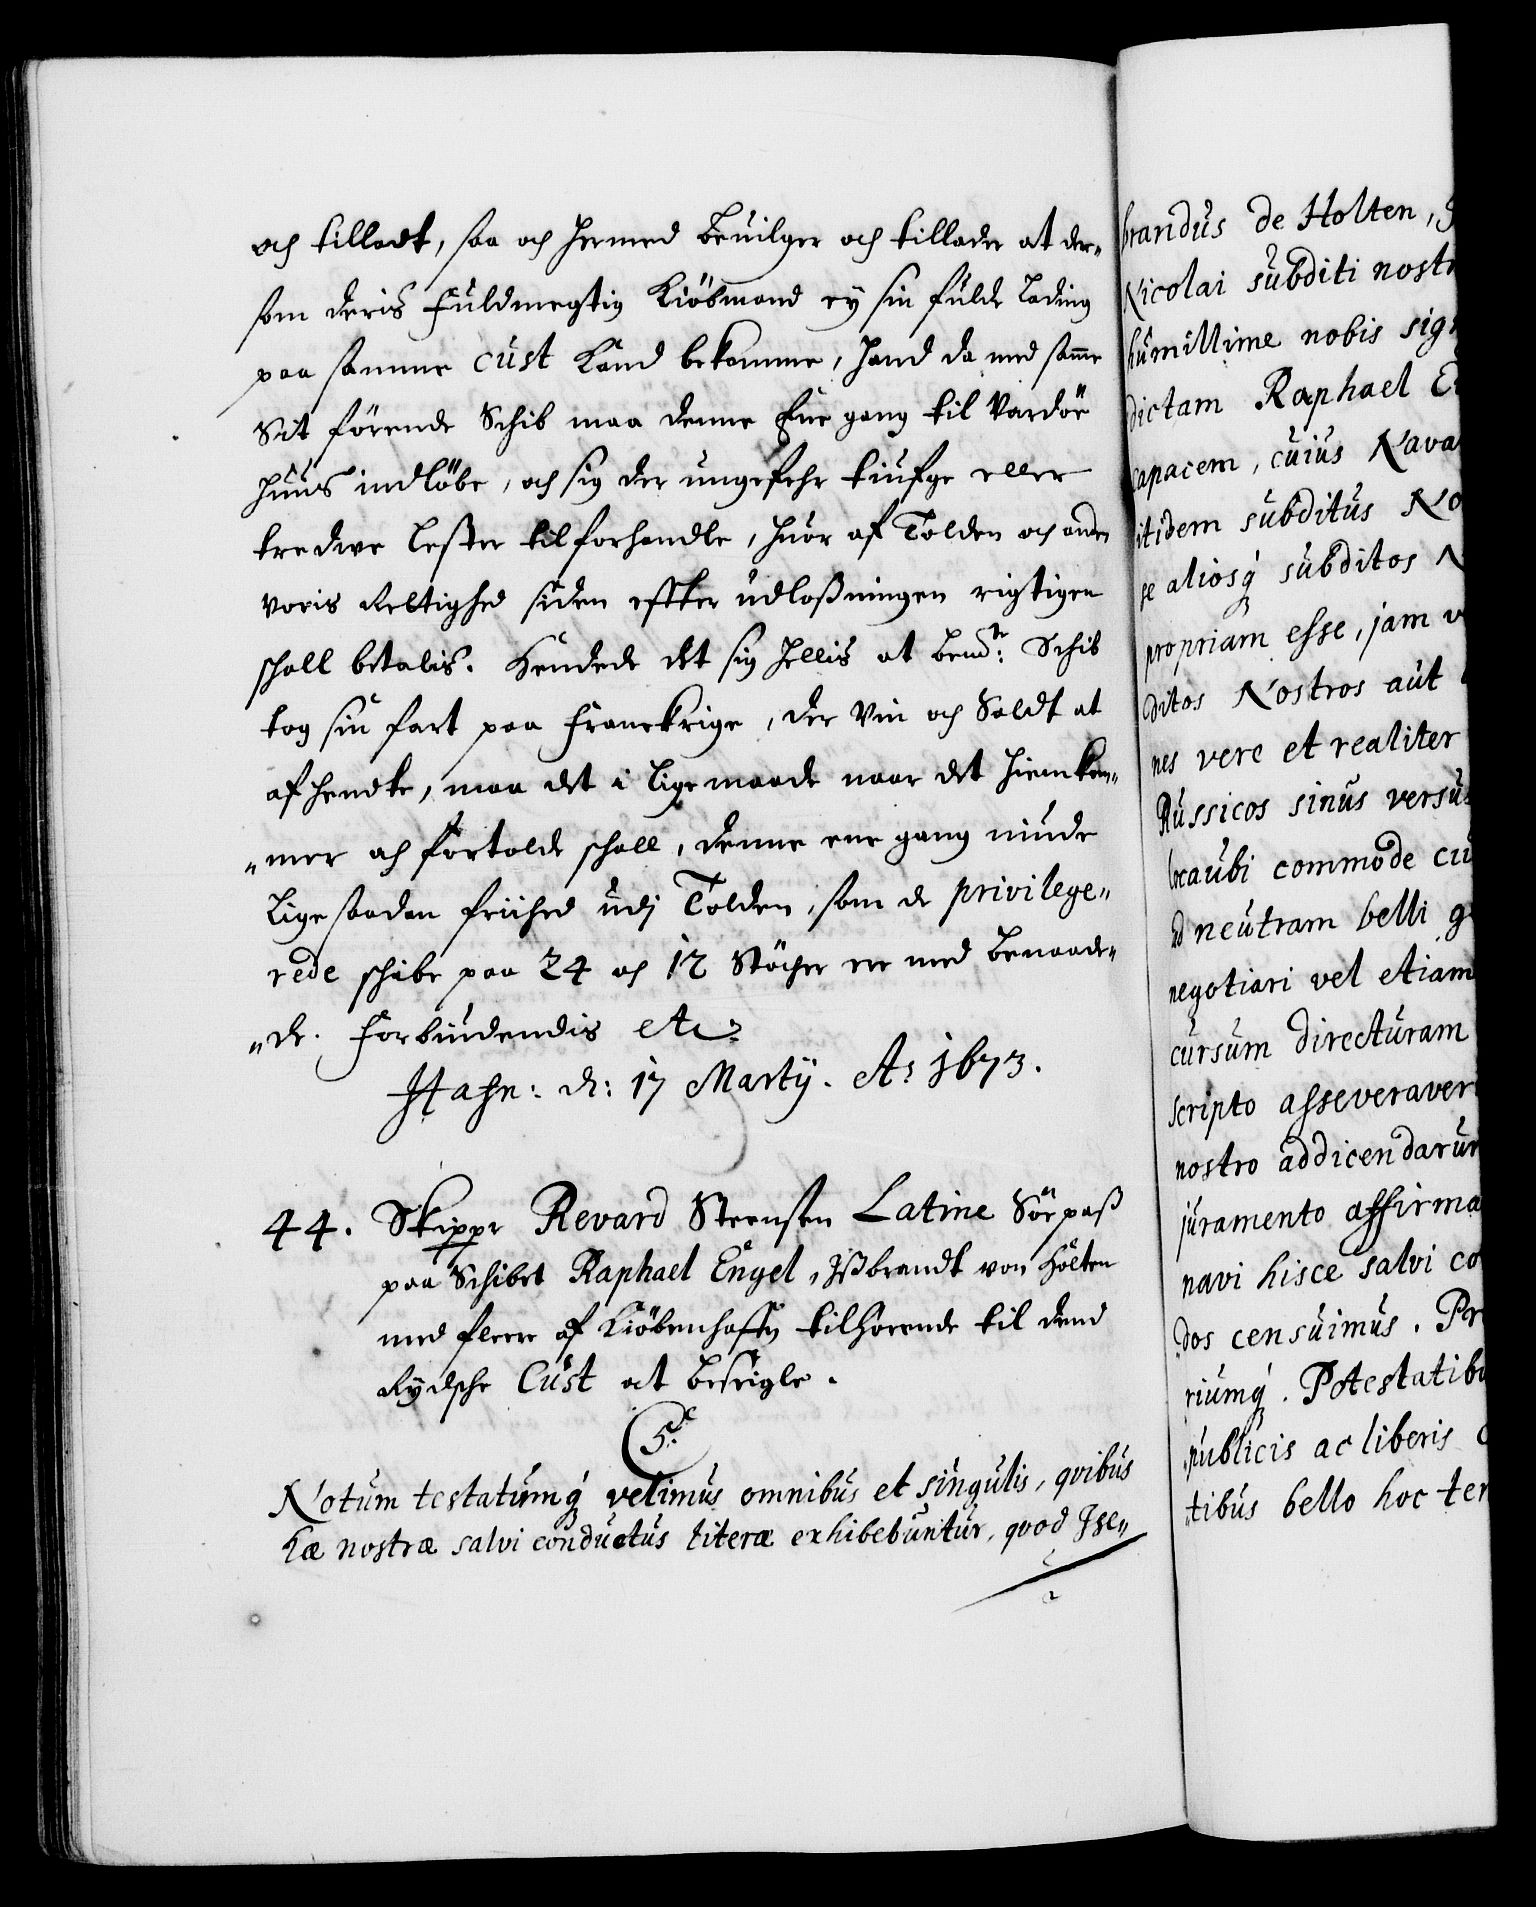 och tilladt, saa och hermed bevilger och tillader at der„
som deris Fuldmegtig Kiöbmand ey sin fulde Lading
paa samme Cust kand bekomme, hand da med samme
Sit förende Schib maa denne Eene gang til Vardöe
huus indlöbe, och sig der ungefehr tiufge eller
tredive Lester tilforhandle, huor af Tolden och anden
voris Rettighed siden effter udlosningen rigtigen
schall betalis. Hendede det sig hellis at bemt: Schib
tog sin fart paa Franckrige, der Vin och Saldt at
afhendte, maa det i lige maade naar det hiemkom„
„mer och fortolde schall, denne ene gang niude
Lige saadan friihed udj Tolden, som de privilege„
rede schibe paa 24 och 12 Stöcher ere med benaade„
„de. Forbiudendis etc:
Hafn: d: 17 Martij. Ao 1673.
44. Skipper Revard Steensen Latine Söepaß
paa Schibet Raphael Engel, Ißbrandt von Holten
med fleere af Kiöbenhaffn tilhorende til dend
Rydsche Cust at beseigle.
C 5.
Notum testatumq́ velimus omnibus et singulis, qvibus
hæ nostræ salvi conductus literæ exhibebuntur, qvod Jse„
brandus de Holten,
Nicolai subditi nostr
humillime nobis sig
dictam Raphael E
capacem, cuius Nava
itidem subditus No
se aliosq́ subditos N
propriam esse, jam v
ditos Nostros aut
nes vere et realiter
Russicos sinus versus
locaubi commode cu
ad neutram belli g
negotiari vel etiam
cursum directuram
scripto asseveraver
nostro addicendarum
juramento affirma
navi hisce salvi co
dos censuimus. Per
riumq́. Potestatibu
publicis ac liberis
tibus bello hoc ter